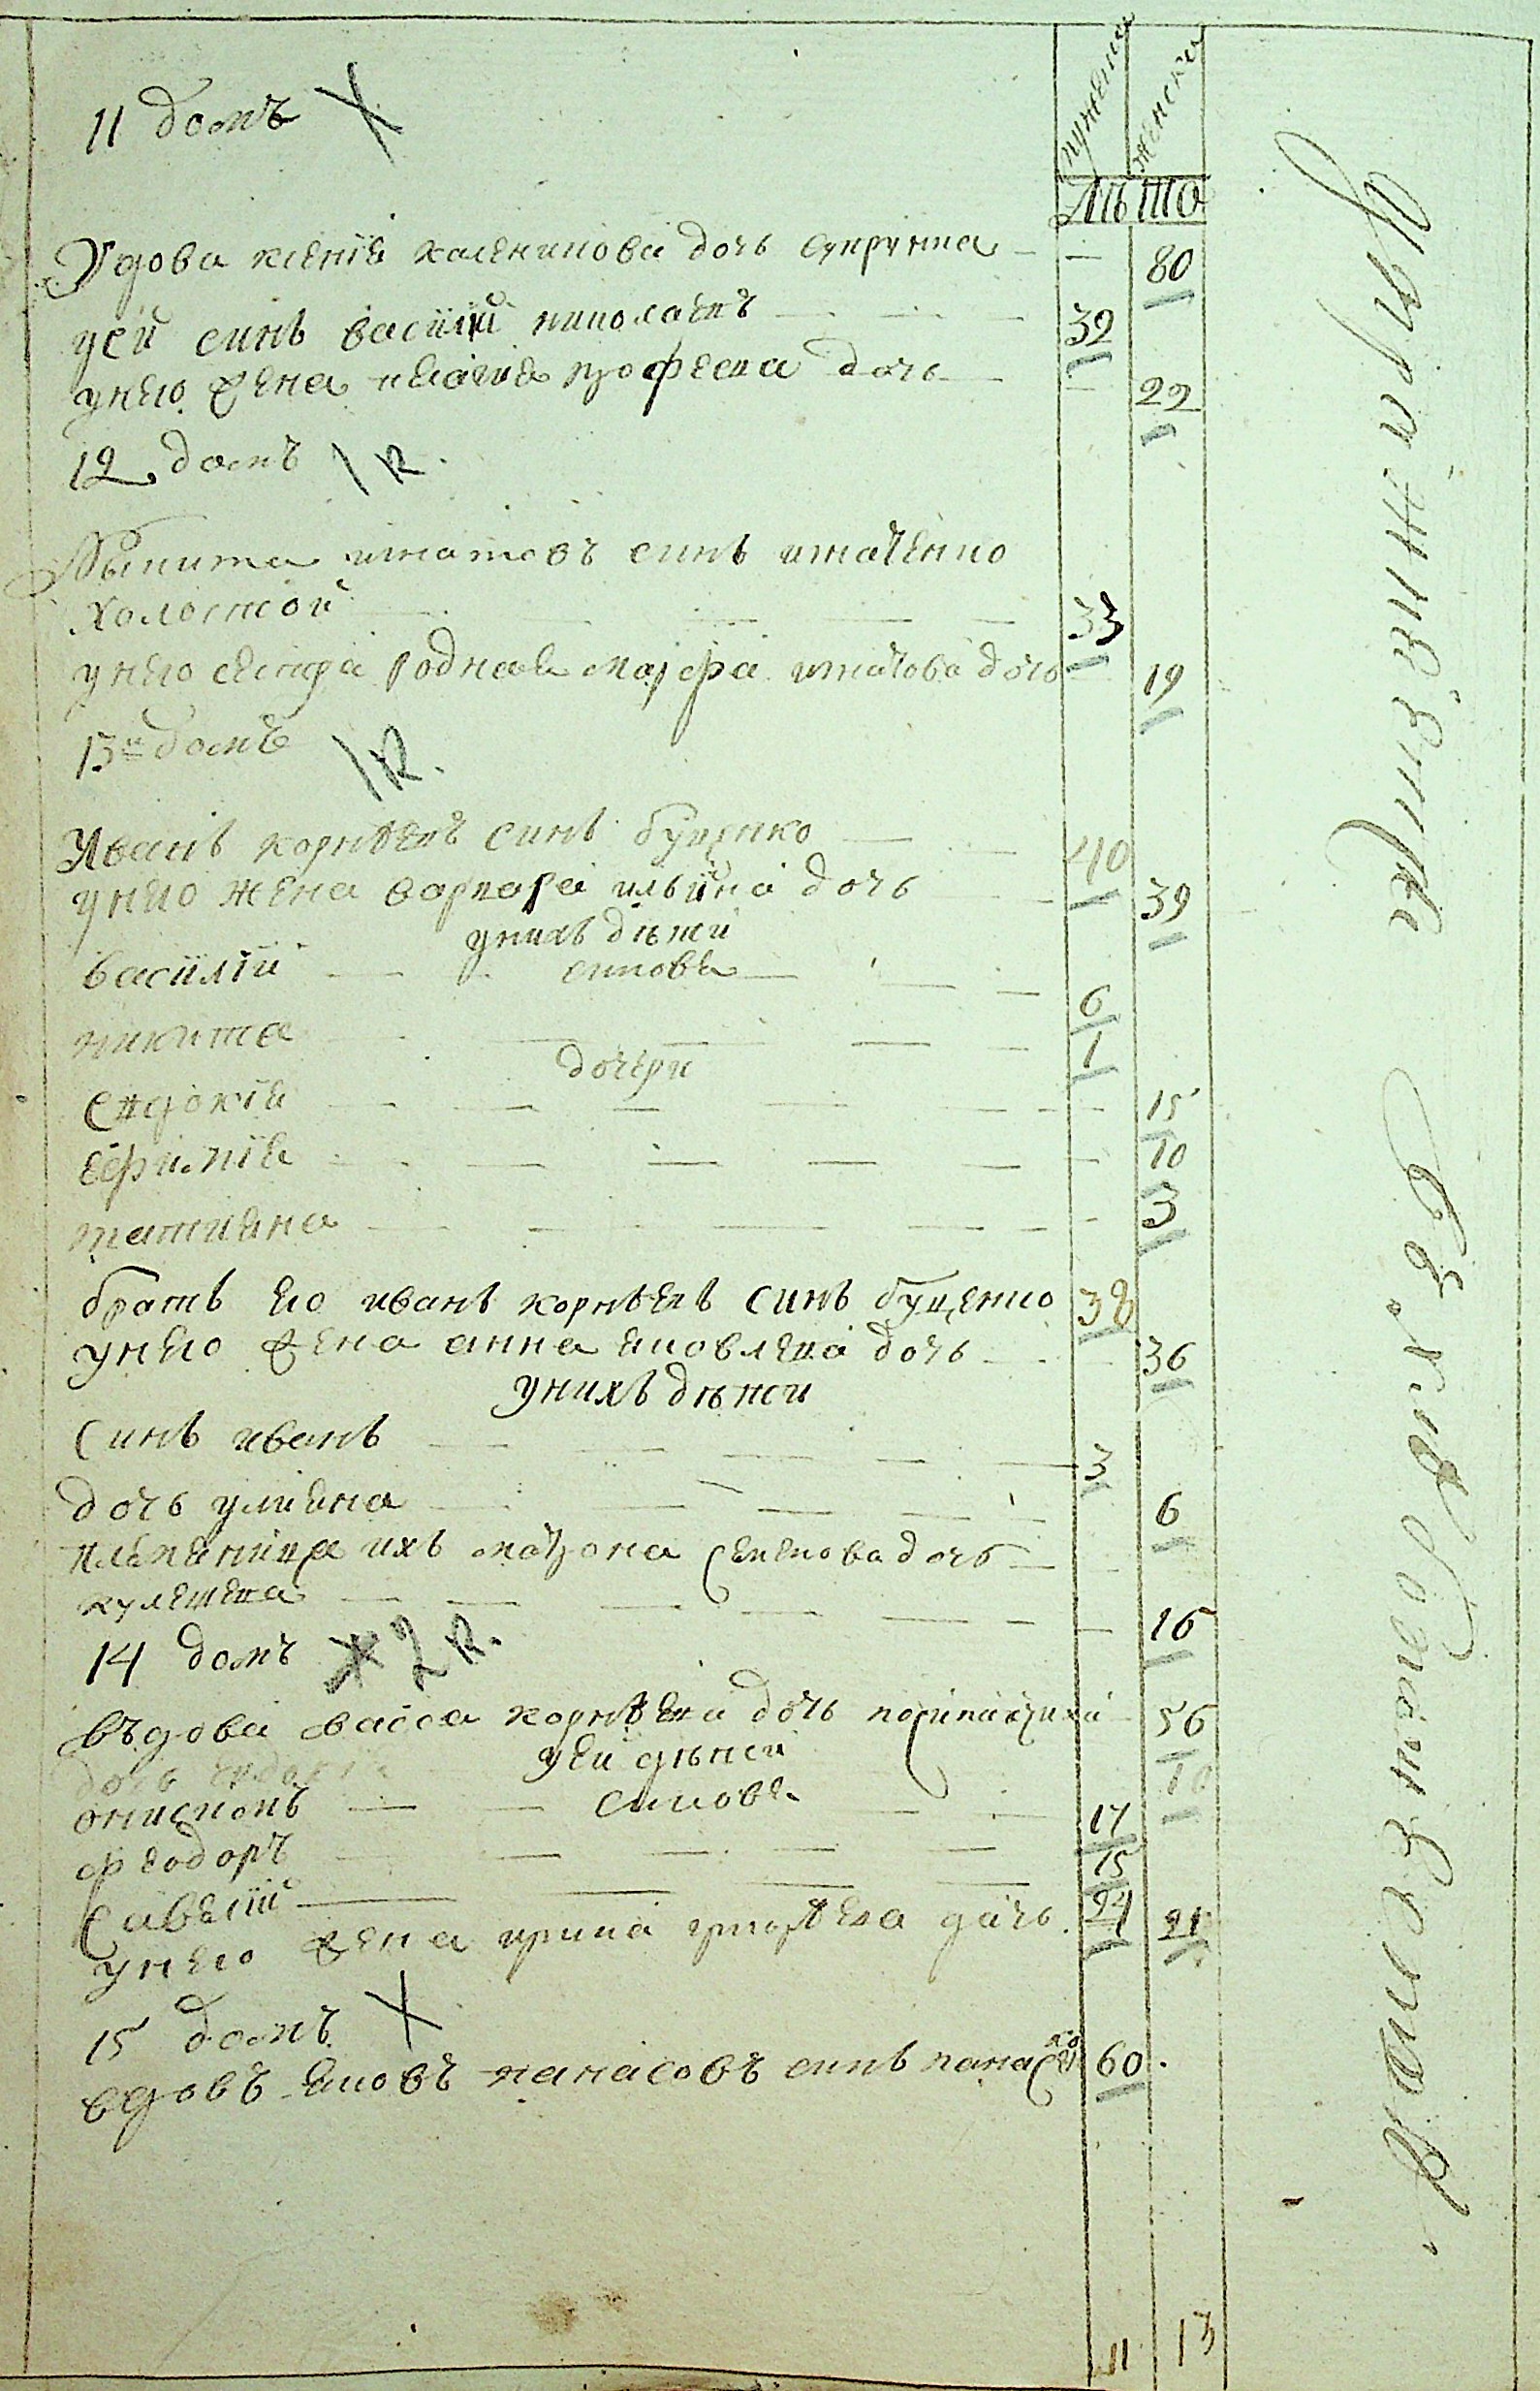 мужеска женска
11 домъ
лѣта
Удова ксенія каленикова дочь супрунка — — 80
уеи синъ василій николаевъ — 39
унего жена пелагия трофеева дочь — 22
12 домъ 1 к.
Никита игнатовъ синъ игнатенко
холостой — 33
унего сестра родная марфа игнатова дочь 19
13 домъ 1 к.
Иванъ корнѣевъ синъ буценко — 40
унего жена варвара ильина дочь — 39
унихъ дѣти
василій — синовя — 6
никита — 1
дочери
Евдокія — 15
Ефимія — 10
татияна — 3
братъ его иванъ корнѣевъ синъ буценко 38
унего жена анна яковлева дочь — 36
унихъ дѣти
Синъ иванъ — 3
дочь улияна — 6
племяница ихъ матрона семенова дочь —
кулешева — 16
14 домъ 2 к.
въдова васса корнѣева дочь 56
уеи дѣти
дочь евдокія 10
онисимъ — синовя — 17
феодоръ — 15
Савелій — 24
унего жена ирина григорѣева дочь 21
15 домъ
вдовъ яковъ панасовъ синъ панасенко 60
11 13